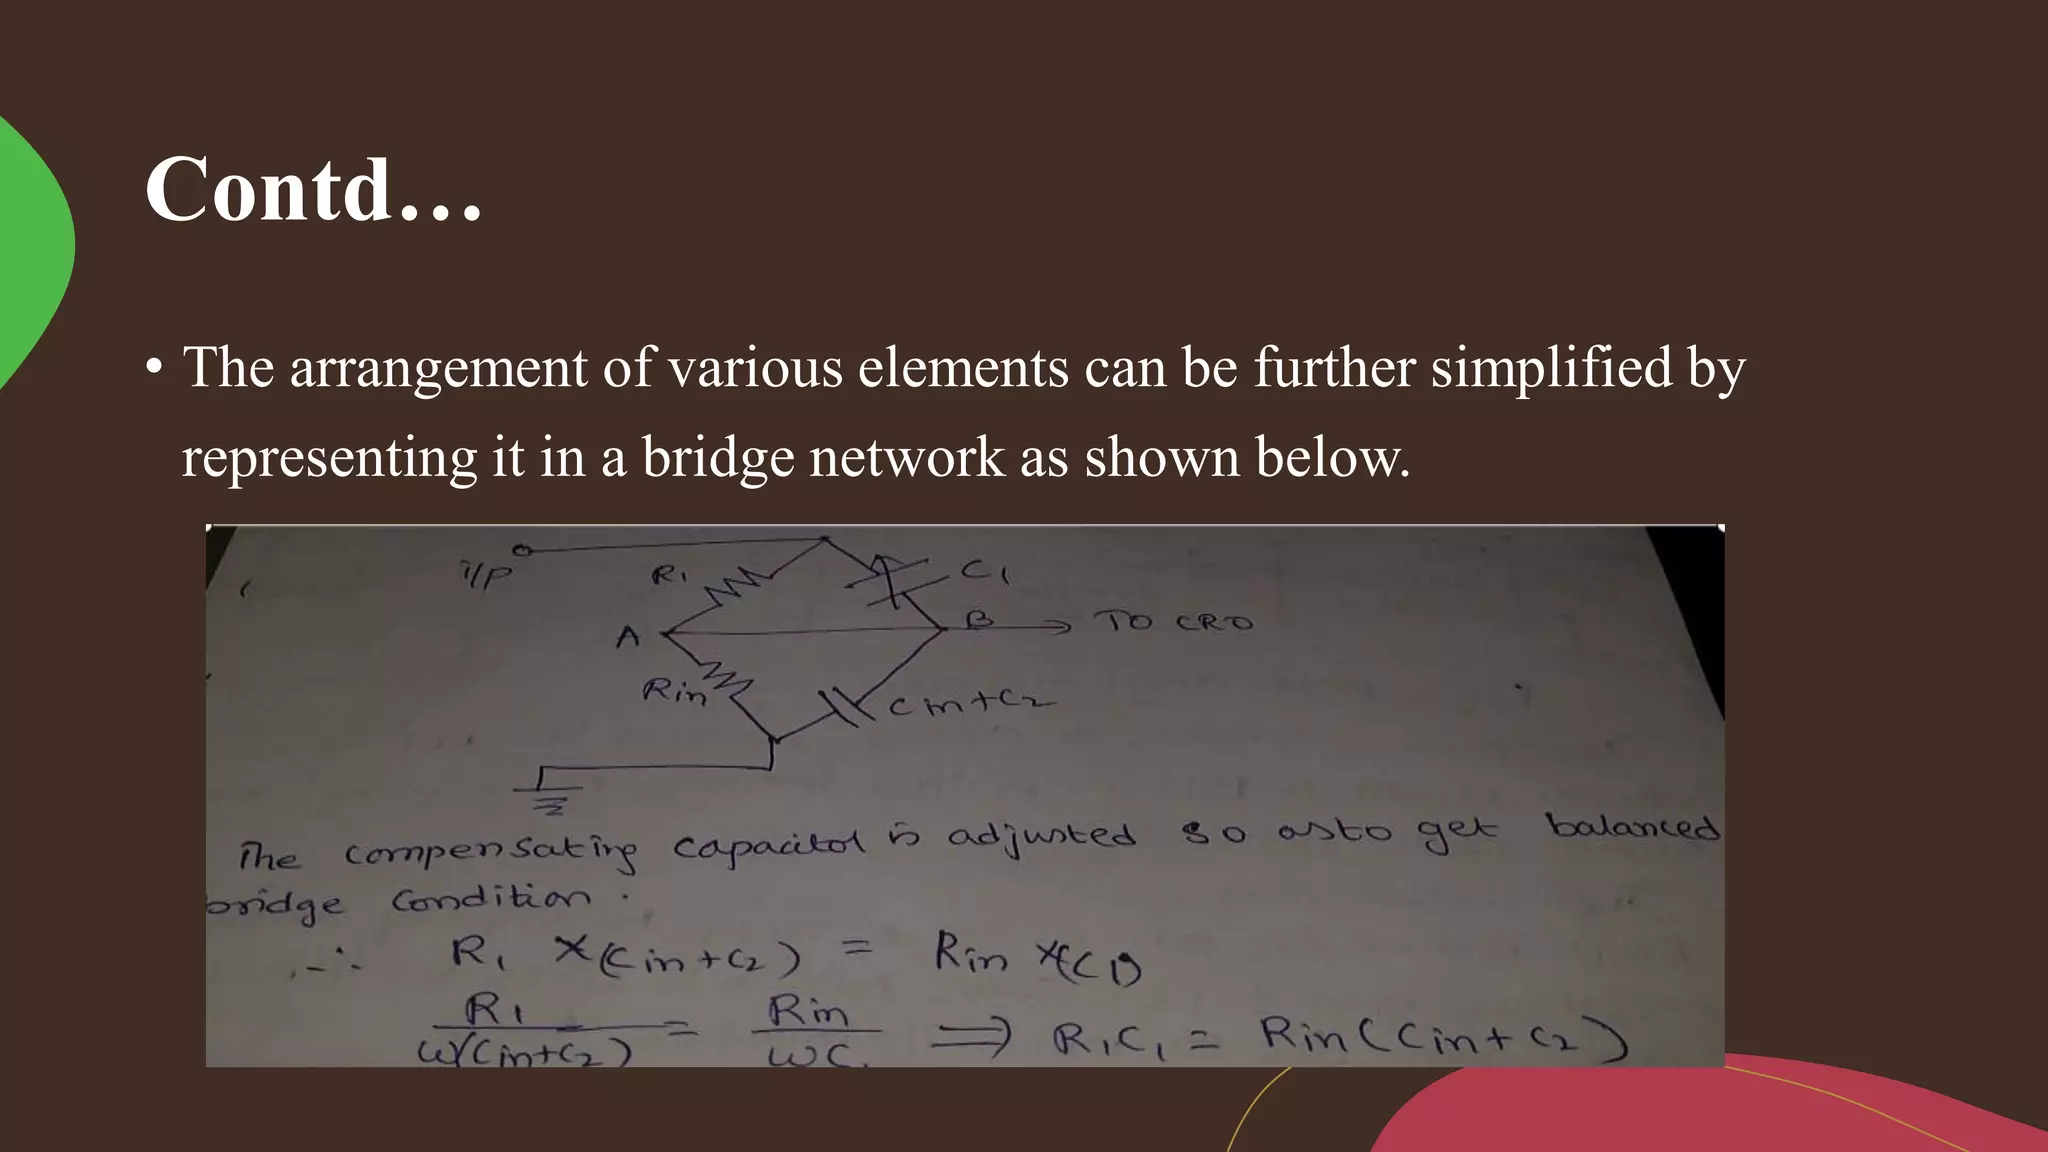 Contd…
• The arrangement of various elements can be further simplified by
representing it in a bridge network as shown below.
i/p
R1
C1
A
B
TO CRO
Rin
Cin+C2
The compensating capacitor is adjusted so as to get balanced
bridge condition.
∴ R1 X(Cin+C2) = Rin X(C1)
R1/ω(Cin+C2) = Rin/ωC1 ⇒ R1C1 = Rin(Cin+C2)